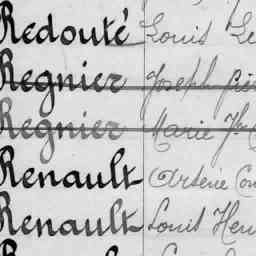 Redouté Louis
Regnier Joseph
Regnier Marie
Renault Arsène
Renault Louis